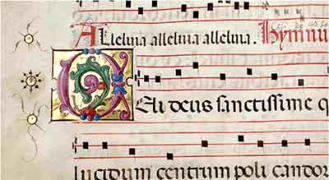 Alleluia alleluia alleluia. Hymnu
CEli deus sanctissime q
lucidum centrum poli candor